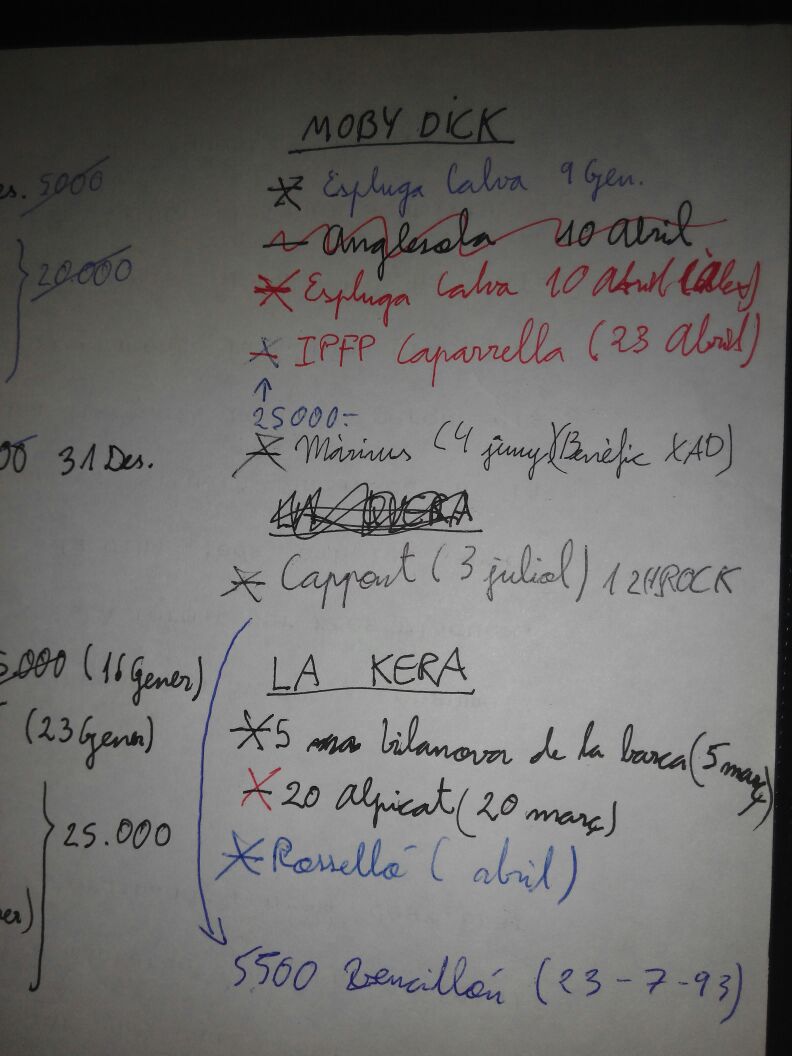 MOBY DICK
es. 5000
Espluga Calva 9 Gen.
Anglesola 10 Abril
20.000
Espluga Calva 10 Abril
IPFP Caparrella (23 Abril)
25000:-
00 31 Des.
Màrius (4 juny) (Benèfic XAD)
LA QUERA
Cappont (3 juliol) 12HROCK
5.000 (16 Gener)
LA KERA
(23 Gener)
5 Vilanova de la barca (5 març)
20 Alpicat (20 març)
25.000
Rosselló ( abril)
er)
5500 Bencillón (23-7-93)